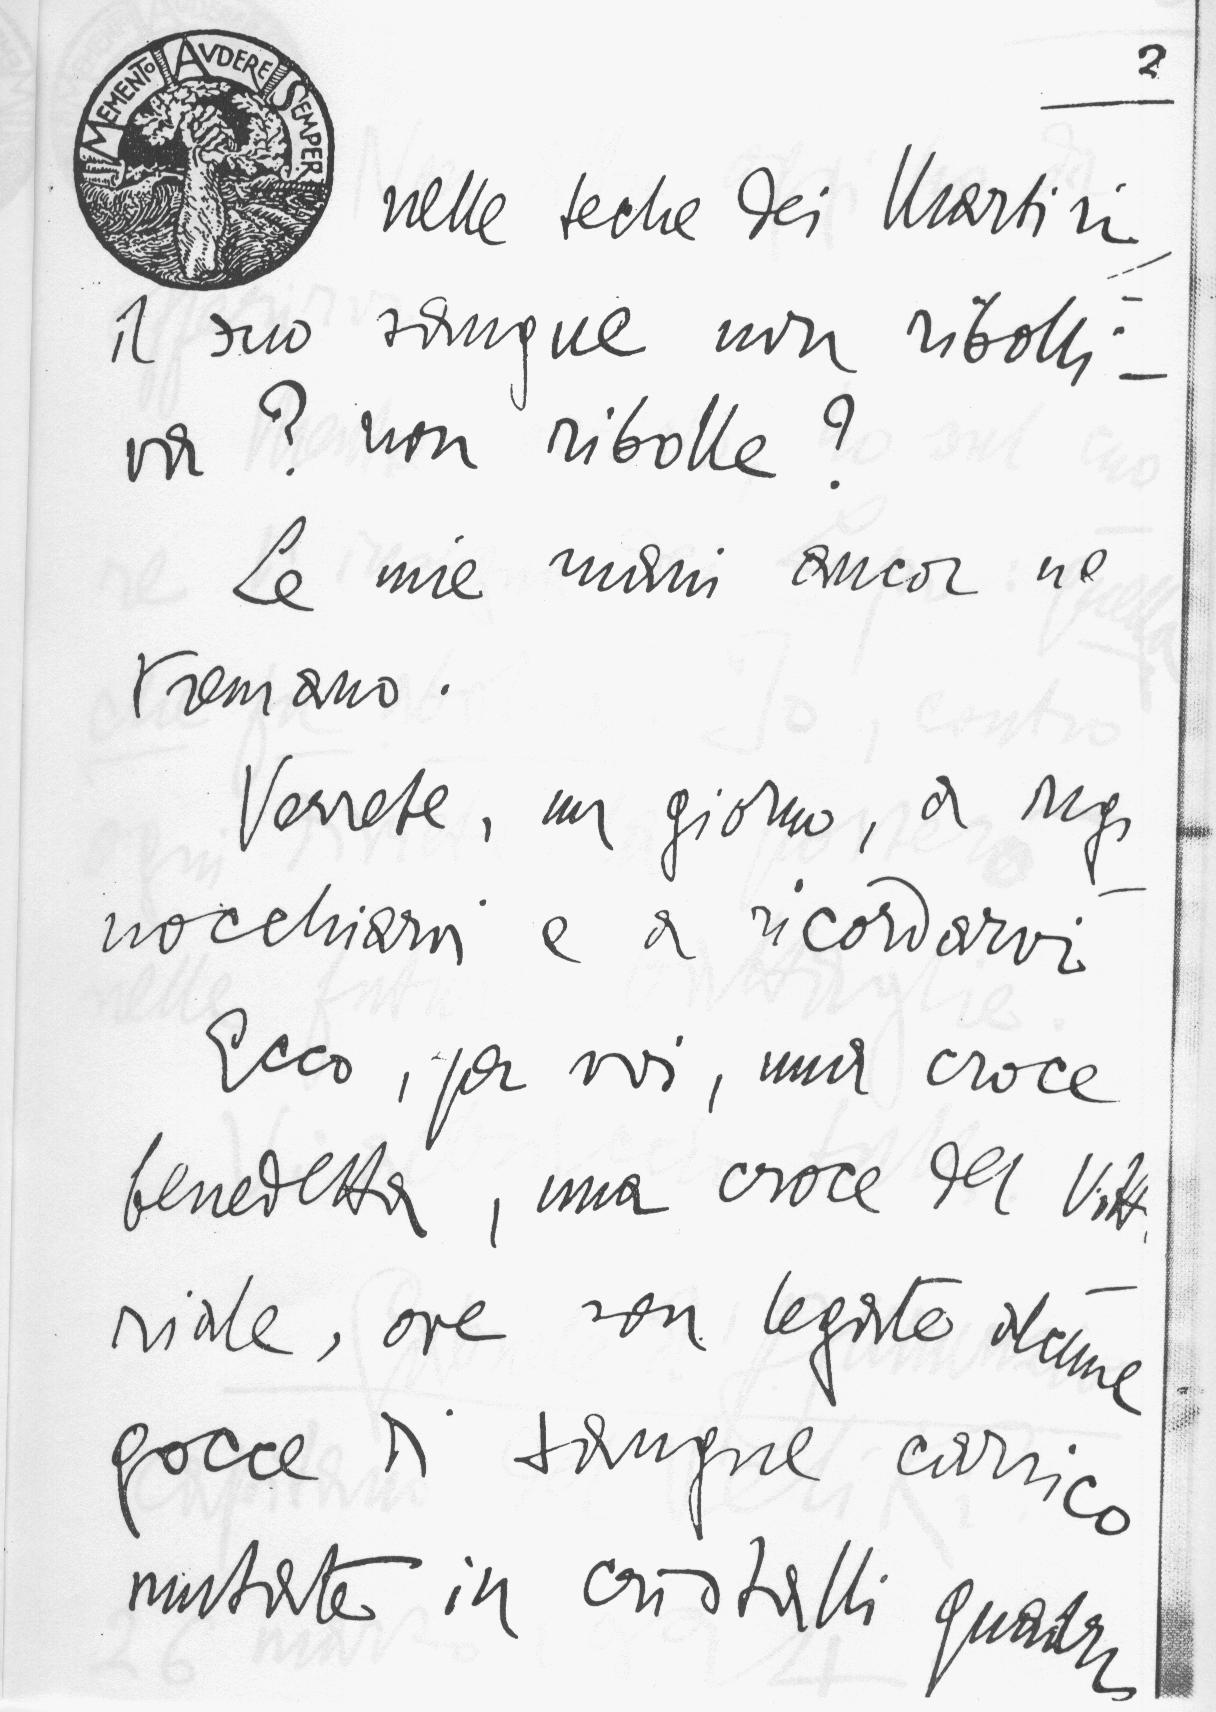 MEMENTO AVDERE SEMPER
2
nelle teche dei Martiri
il suo sangue non ribolli-
va? non ribolle?
Le mie mani ancor ne
tremano.
Verrete, un giorno, a ingi
nocchiarvi e a ricordarvi
Ecco, per voi, una croce
benedetta, una croce del Vitt.
riale, ove son legate alcune
gocce di sangue carsico
mutate in cristalli